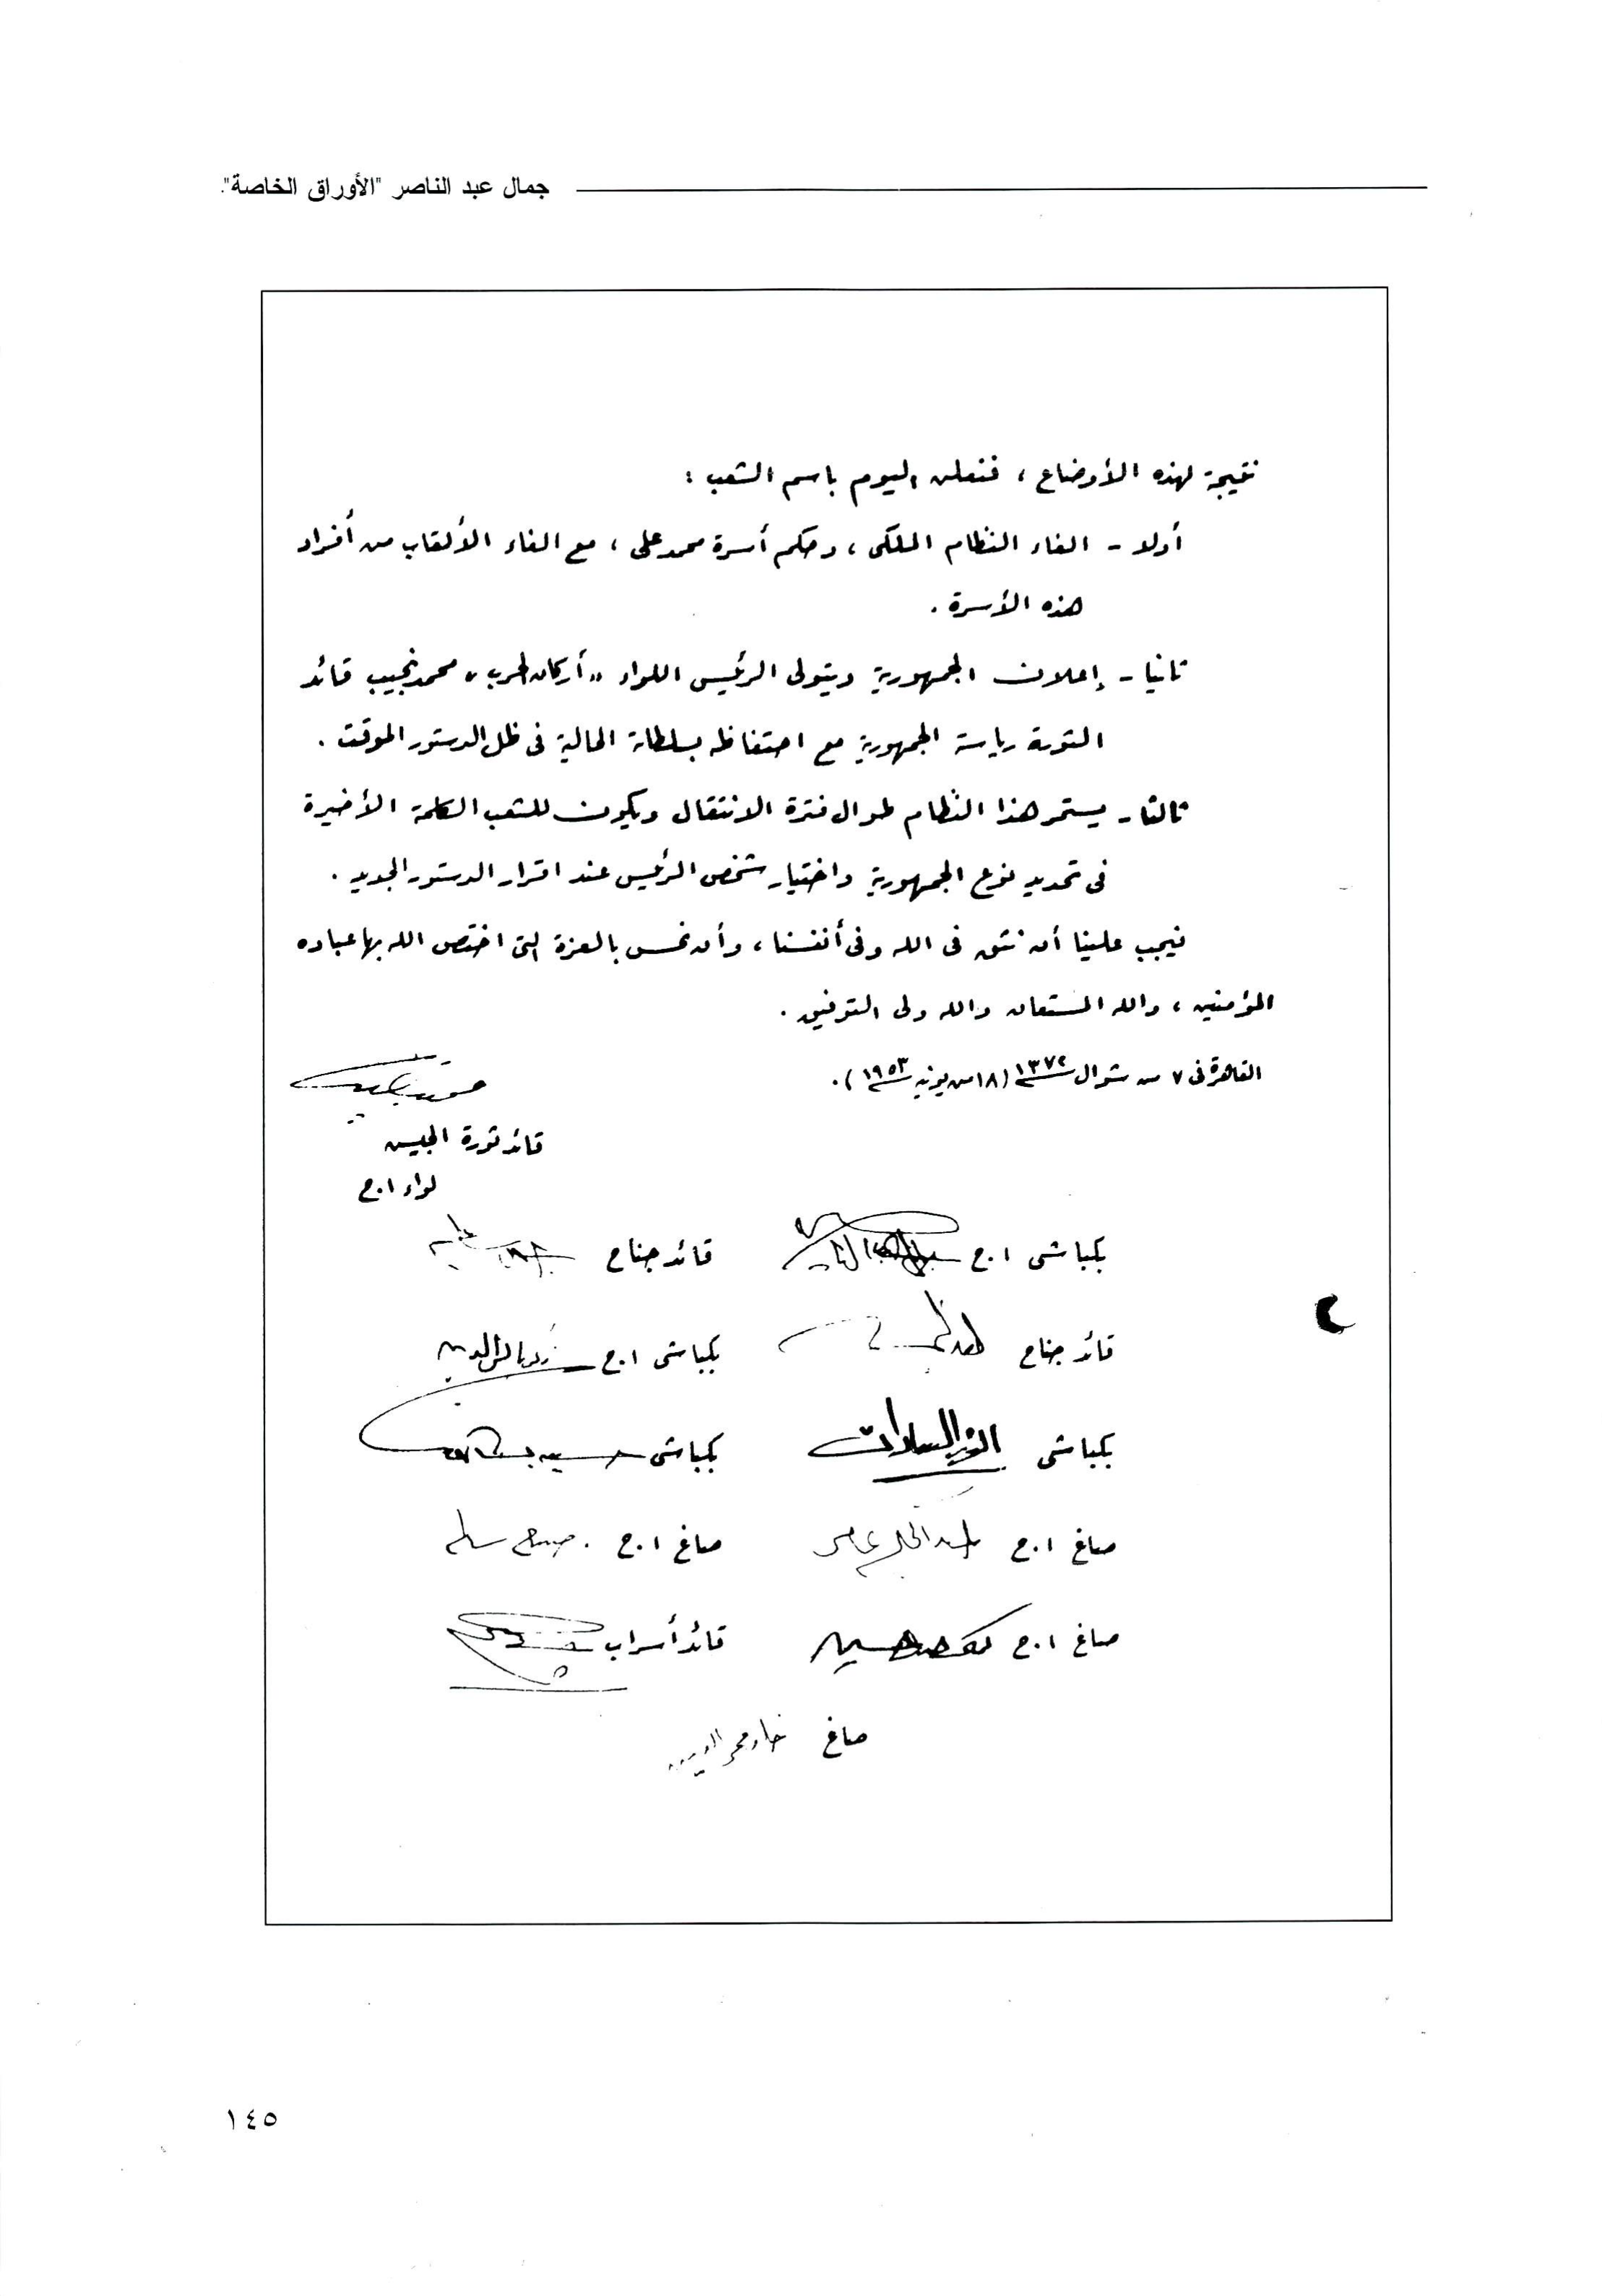 جمال عبد الناصر "الأوراق الخاصة".
نتيجة لهذه الأوضاع ، فنعلن اليوم باسم الشعب :
أولا - الغاء النظام الملكى ، وحكم أسرة محمد على ، مع الغاء الألقاب من أفراد
هذه الأسرة .
ثانيا - إعلان الجمهورية ويتولى الرئيس اللواء "أركان الحرب" محمد نجيب قائد
الثورة رياسة الجمهورية مع احتفاظه بسلطاته الحالية فى ظل الدستور الموقت .
ثالثا - يستمر هذا النظام طوال فترة الانتقال ويكون للشعب الكلمة الأخيرة
فى تحديد نوع الجمهورية واختيار شخص الرئيس عند اقرار الدستور الجديد .
فيجب علينا أن نثق فى الله وفى أنفسنا ، وأن نحس بالعزة التى اختص الله بها عباده
المؤمنين ، والله المستعان والله ولى التوفيق .
القاهرة فى ٧ من شوال ١٣٧٢ (١٨ من يونيه ١٩٥٣) .
قائد ثورة الجيش
لواء ا.ح
بكباشى ا.ح قائد جناح
قائد جناح بكباشى ا.ح زكريا محى الدين
بكباشى أنور السادات بكباشى حسين
صاغ ا.ح عبد الحكيم عامر صاغ ا.ح صلاح سالم
صاغ ا.ح كمال الدين حسين قائد أسراب
صاغ خالد محى الدين
٢
١٤٥